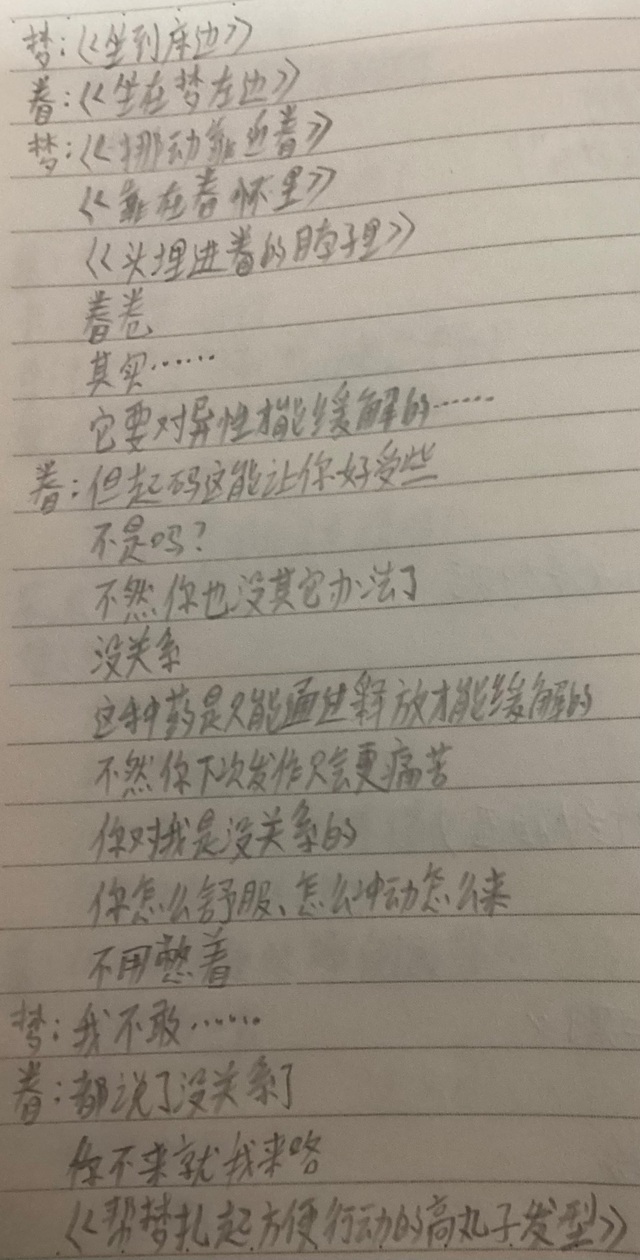 梦:《坐到床边》
眷:《坐在梦左边》
梦:《挪动靠近眷》
《靠在眷怀里》
《头埋进眷的脖子里》
眷眷
其实……
它要对异性才能缓解的……
眷:但起码这能让你好受些
不是吗?
不然你也没其它办法了
没关系
这种药是只能通过释放才能缓解的
不然你下次发作只会更痛苦
你对我是没关系的
你怎么舒服、怎么冲动怎么来
不用憋着
梦:我不敢……
眷:都说了没关系了
你不来就我来咯
《帮梦扎起方便行动的高丸子发型》